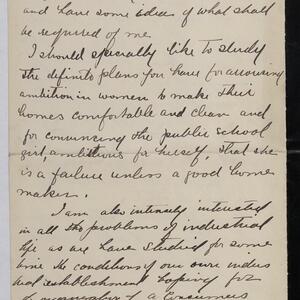 and have some idea of what shall
be required of me.
I should specially like to study
the definite plans you have for arousing
ambition in women to make their
homes comfortable and clean and
for convincing the public school
girl, ambitious for herself, that she
is a failure unless a good home
maker.
I am also intensely interested
in all the problems of industrial
life as are have studied for some
time the conditions of our own indus
trial establishment hoping for
a Consumers